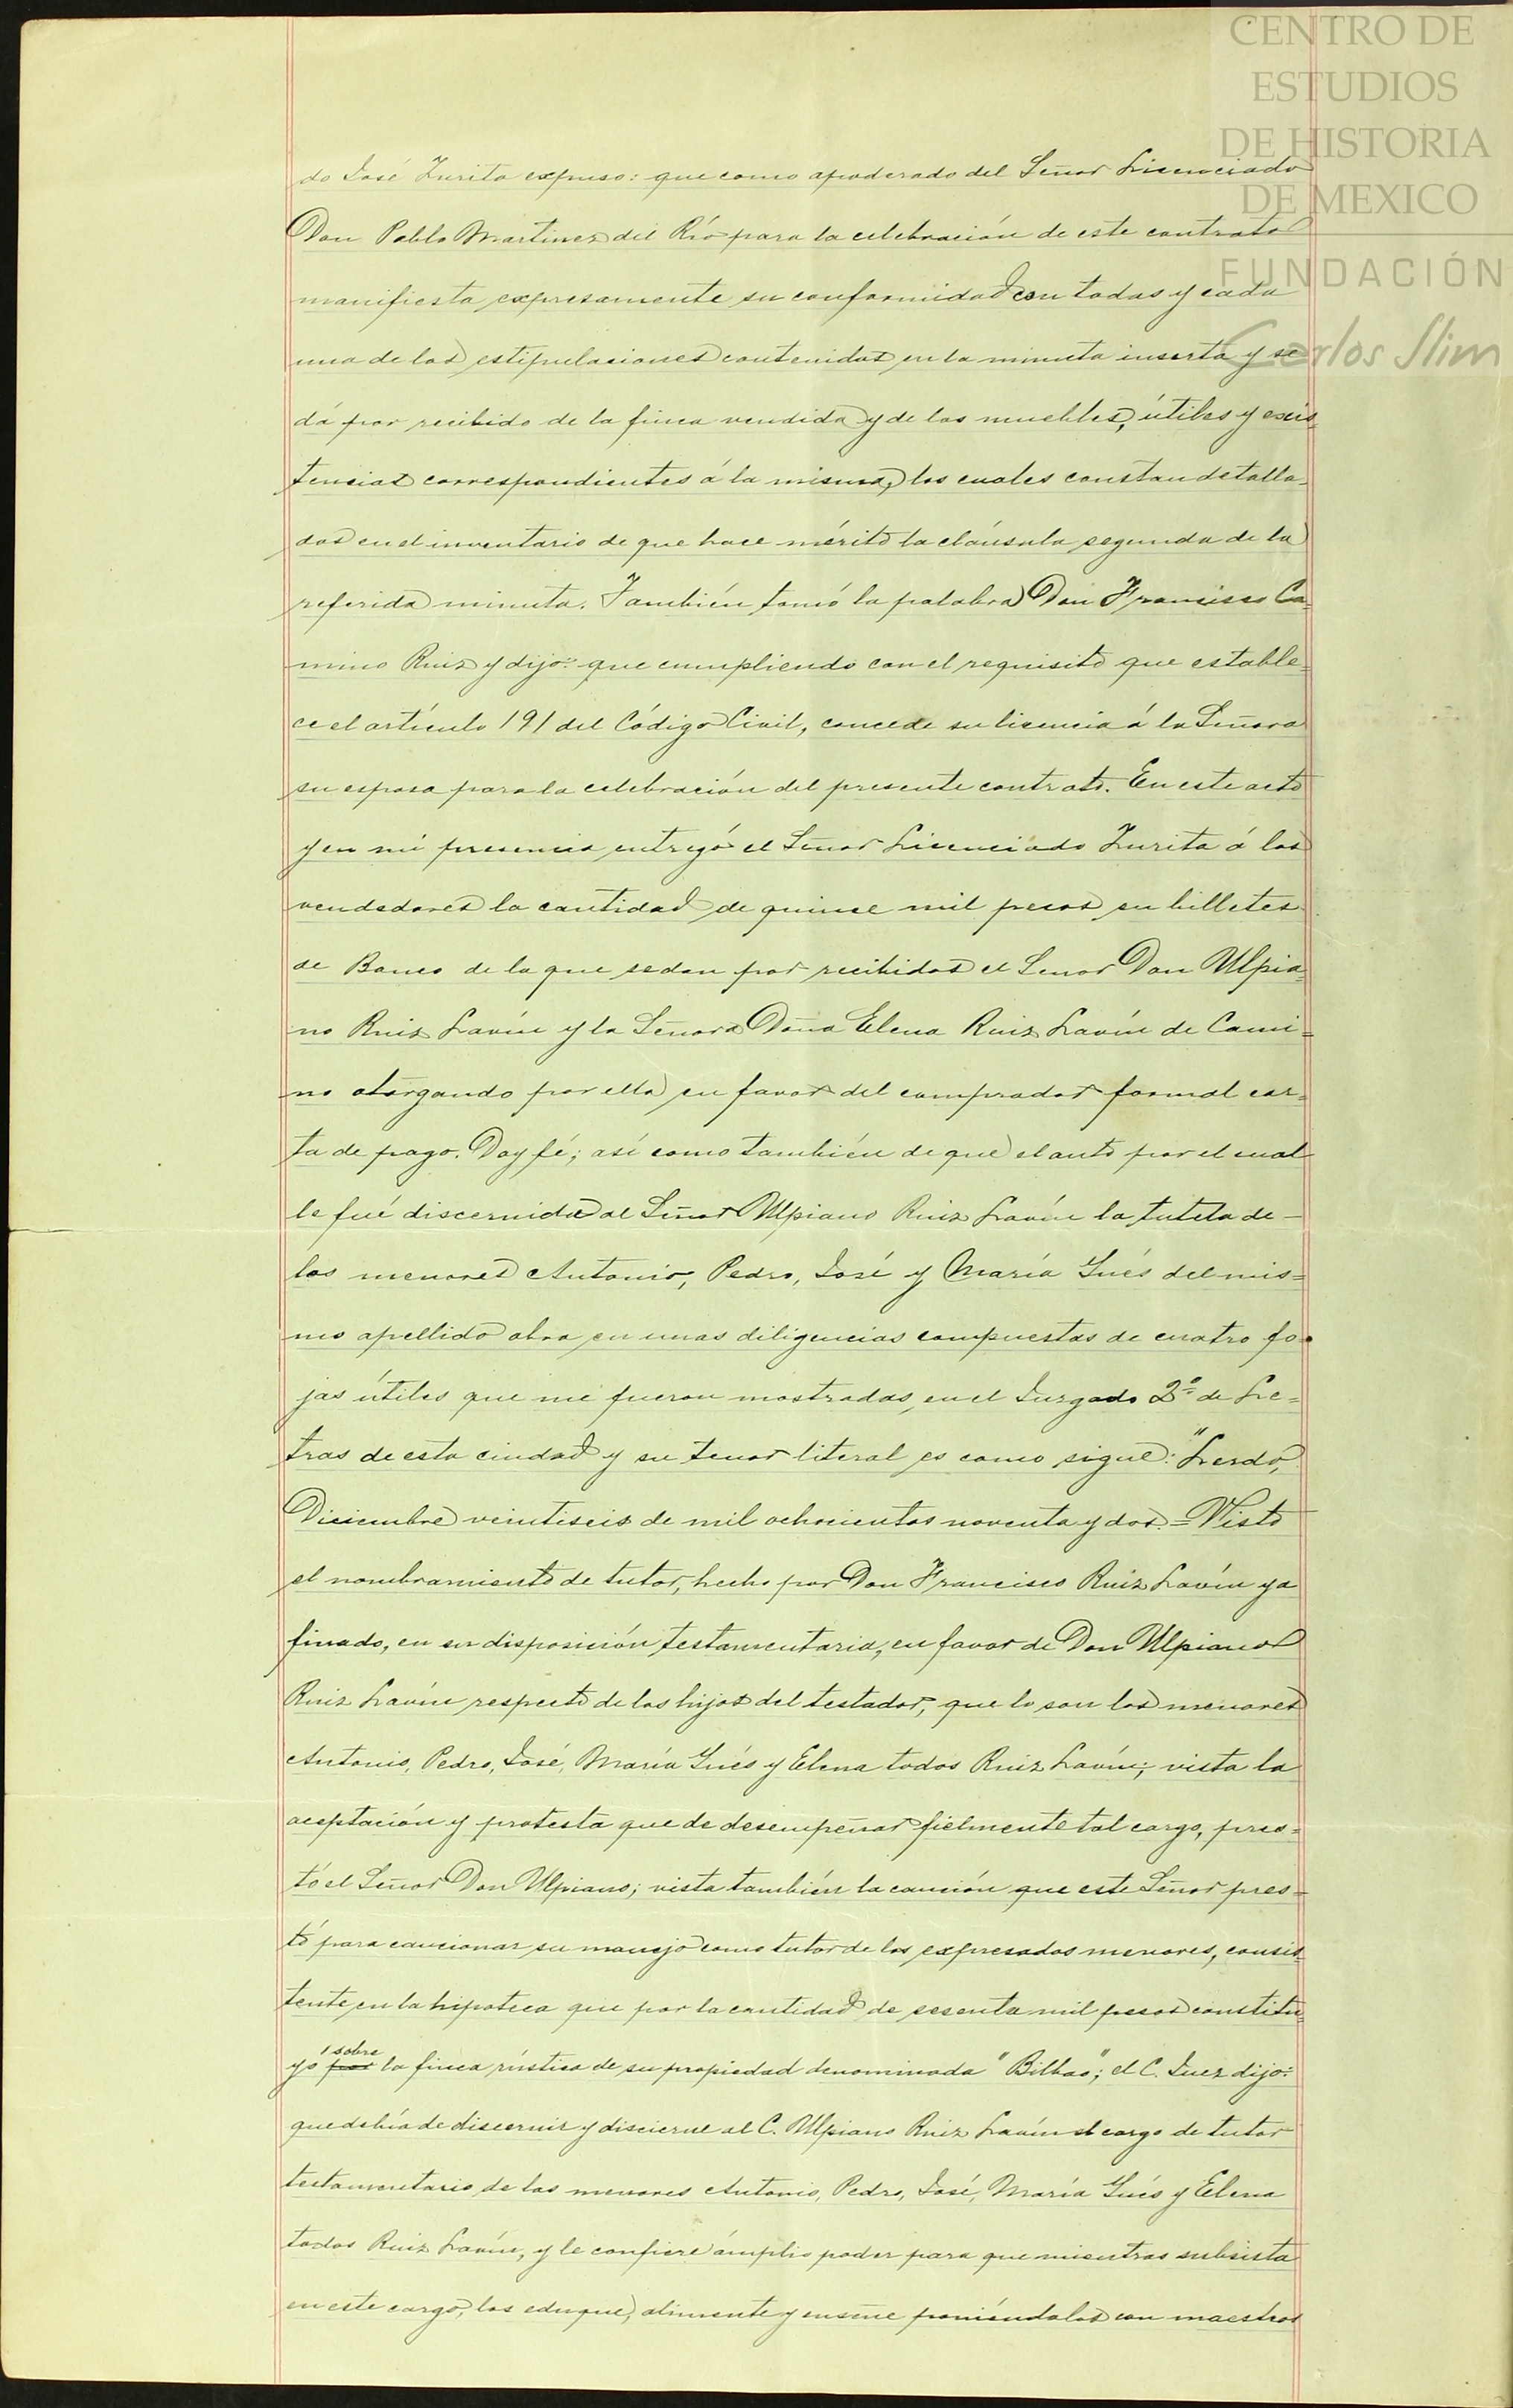 CENTRO DE
ESTUDIOS
DE HISTORIA
DE MEXICO
FUNDACIÓN
Carlos Slim
do José Zurita expuso: que como apoderado del Señor Licenciado
Don Pablo Martinez del Río para la celebración de este contrato
manifiesta expresamente su conformidad con todas y cada
una de las estipulaciones contenidas en la minuta inserta y se
dá por recibido de la finca vendida y de los muebles, útiles y exis-
tencias correspondientes á la misma, los cuales constan detalla-
dos en el inventario de que hace mérito la cláusula segunda de la
referida minuta. También tomó la palabra Don Francisco Ca-
mino Ruiz y dijo: que cumpliendo con el requisito que estable=
ce el artículo 191 del Código Civil, concede su licencia á la Señora
su esposa para la celebración del presente contrato. En este acto
y en mi presencia entregó el Señor Licenciado Zurita á los
vendedores la cantidad de quince mil pesos en billetes
de Banco de la que se dan por recibidos el Señor Don Ulpia=
no Ruiz Lavín y la Señora Doña Elena Ruiz Lavín de Cami=
no otorgando por ella en favor del comprador formal car=
ta de pago. Doy fé; así como también de que el auto por el cual
le fué discernida al Señor Ulpiano Ruiz Lavín la tutela de -
los menores Antonio, Pedro, José y María Ynés del mis=
mo apellido obra en unas diligencias compuestas de cuatro fo=
jas útiles que me fueron mostradas, en el Juzgado 2º de Le=
tras de esta ciudad y su tenor literal es como sigue: "Lerdo,
Diciembre veintiseis de mil ochocientos noventa y dos.=Visto
el nombramiento de tutor, hecho por Don Francisco Ruiz Lavín ya
finado, en su disposición testamentaria, en favor de Don Ulpiano
Ruiz Lavín respecto de los hijos del testador, que lo son los menores
Antonio, Pedro, José, María Ynés y Elena todos Ruiz Lavín; vista la
aceptación y protesta que de desempeñar fielmente tal cargo, pres=
tó el Señor Don Ulpiano; vista también la caución que este Señor pres=
tó para caucionar su manejo como tutor de los expresados menores, consis-
tente en la hipoteca que por la cantidad de sesenta mil pesos constitu-
yó por sobre la finca rústica de su propiedad denominada "Bilbao"; el C. Juez dijo:
que debía de discernir y discierne al C. Ulpiano Ruiz Lavín el cargo de tutor
testamentario de los menores Antonio, Pedro, José, María Ynés y Elena
todos Ruiz Lavín, y le confiere ámplio poder para que mientras subsista
en este cargo, los eduque, alimente y enseñe poniéndolos con maestros